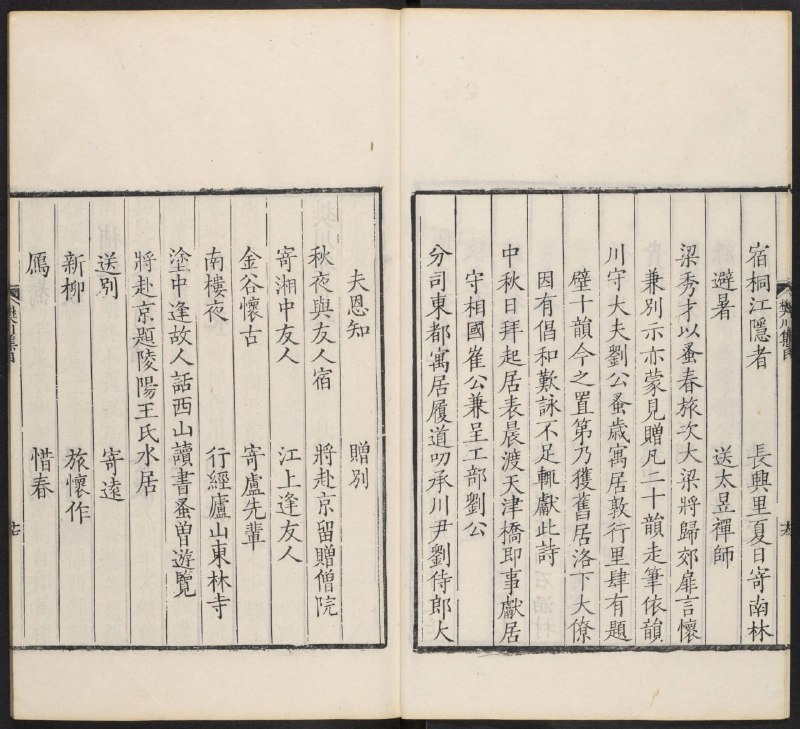 宿桐江隱者　長興里夏日寄南林
避暑　送太昱禪師
梁秀才以蚤春旅次大梁將歸郊扉言懷
兼別示亦蒙見贈凡二十韻走筆依韻
川守大夫劉公蚤歲寓居敦行里肆有題
壁十韻今之置第乃獲舊居洛下大僚
因有倡和歎詠不足輒獻此詩
中秋日拜起居表晨渡天津橋即事獻居
守相國崔公兼呈工部劉公
分司東都寓居履道叨承川尹劉侍郎大
夫恩知　贈別
秋夜與友人宿　將赴京留贈僧院
寄湘中友人　江上逢友人
金谷懷古　寄盧先輩
南樓夜　行經廬山東林寺
塗中逢故人話西山讀書蚤曾遊覽
將赴京題陵陽王氏水居
送別　寄遠
新柳　旅懷作
鴈　惜春